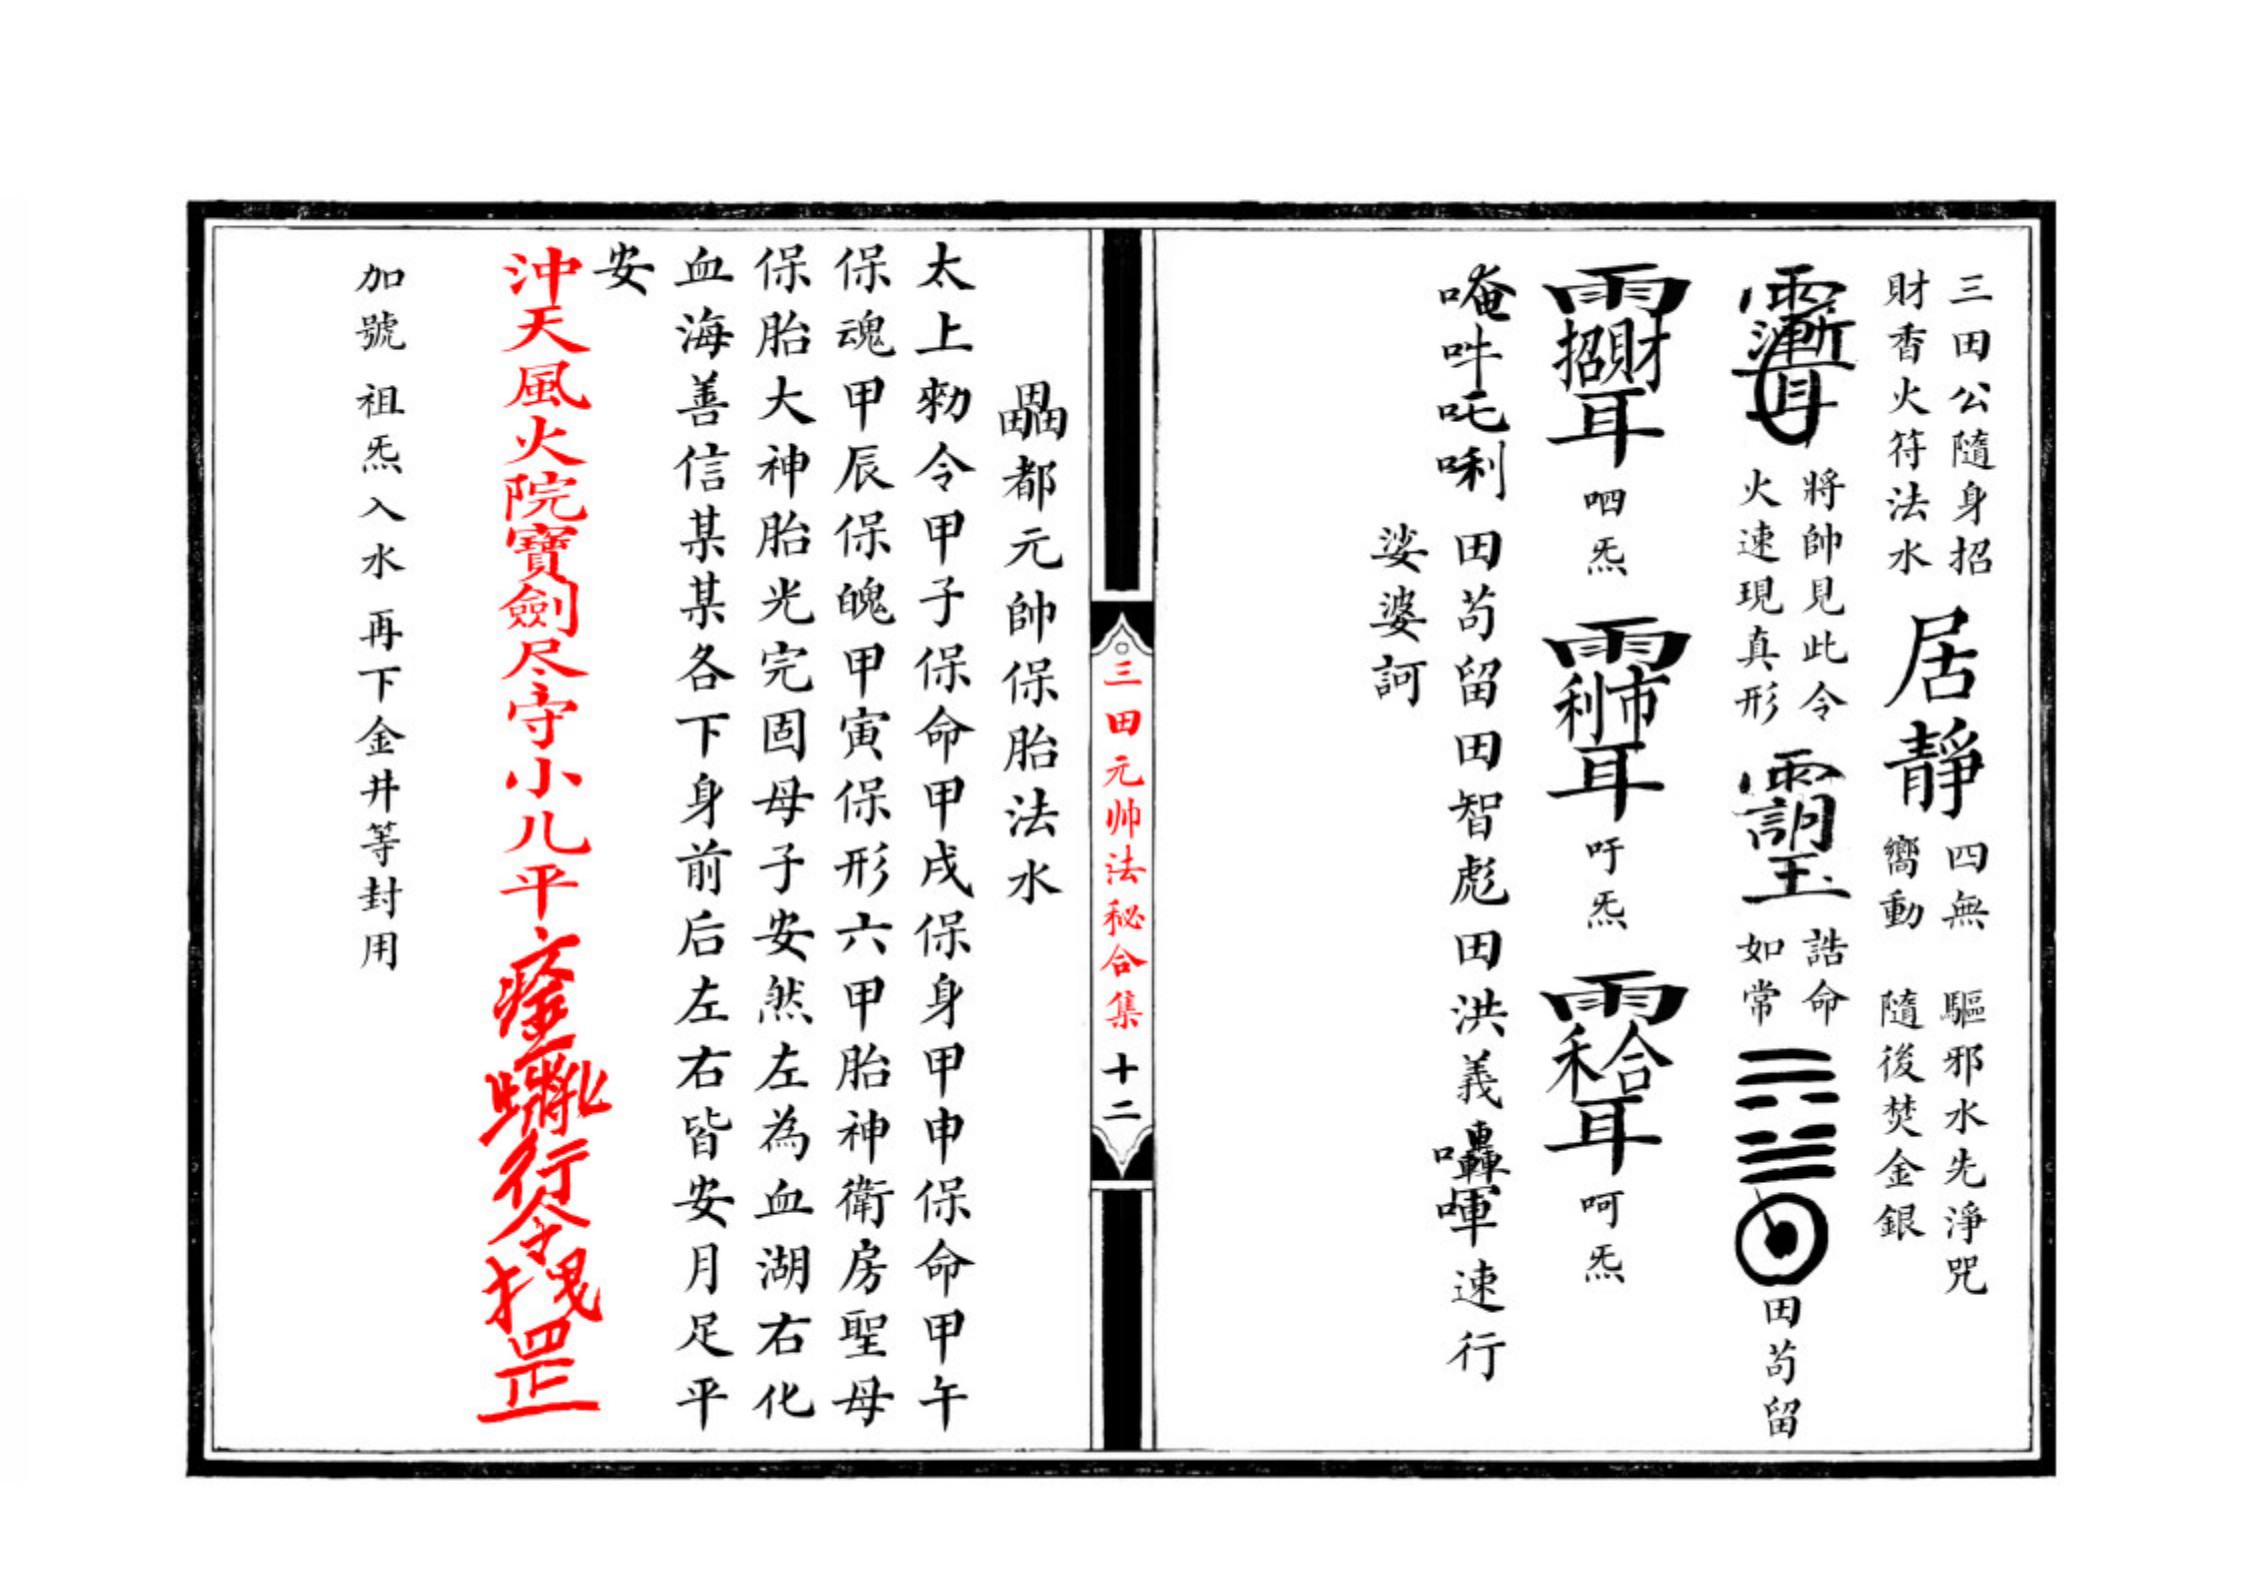 三田公隨身招
財香火符法水
居靜
四無
嚮動
驅邪水先淨咒
隨後焚金銀
將帥見此令
火速現真形
誥命
如常
田苟留
呬炁
吁炁
呵炁
唵吽吒唎
田苟留田智彪田洪義
速行
娑婆訶
三田元帅法秘合集
十二
畾都元帥保胎法水
太上勑令甲子保命甲戌保身甲申保命甲午
保魂甲辰保魄甲寅保形六甲胎神衛房聖母
保胎大神胎光完固母子安然左為血湖右化
血海善信某某各下身前后左右皆安月足平
安
沖天風火院寶劍尽守小儿平
行令
罡
加號 祖炁入水 再下金井等封用